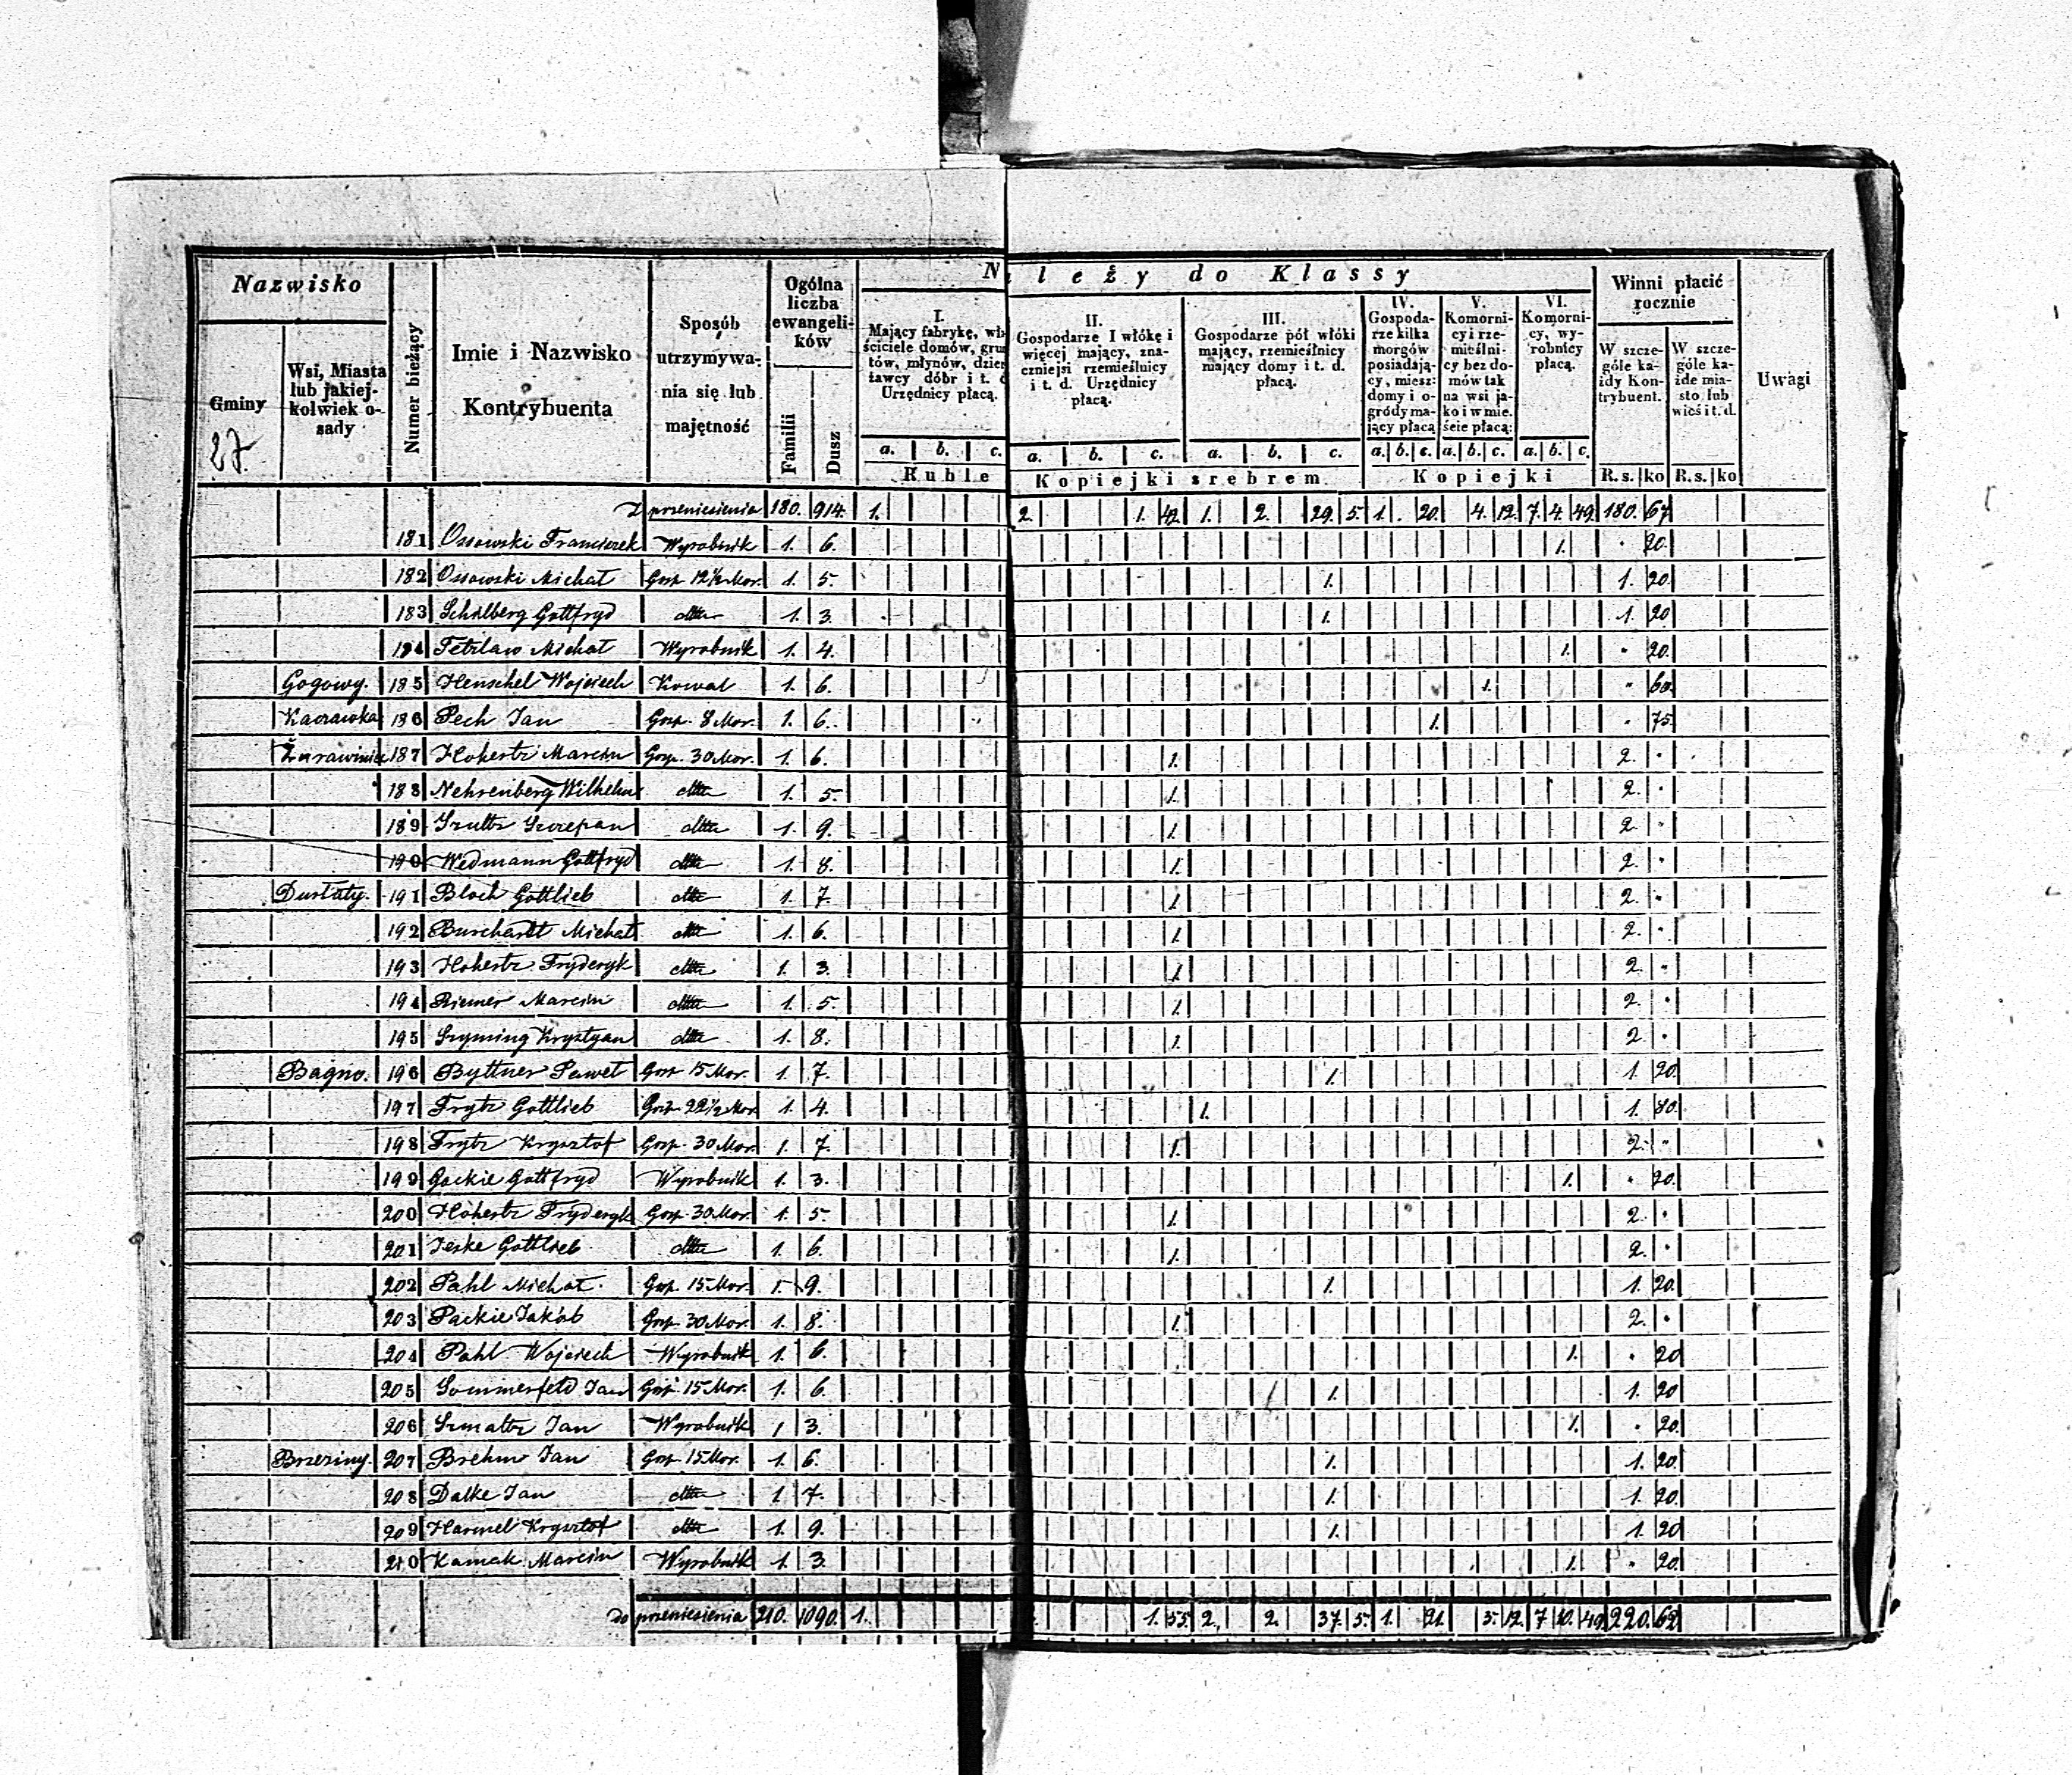 Nazwisko
Gminy
27.
Wsi, Miasta lub jakiej-kolwiek o-sady
Numer bieżący
Imie i Nazwisko Kontrybuenta
Sposób utrzymywa-nia się lub majętność
Ogólna liczba ewangeli-ków
Familii
Dusz
Należy do Klassy
I. Mający fabrykę,
ściciele domów,
tów, młynów,
tawcy dóbr i t.
Urzędnicy płacą.
a. b. c.
Ruble
II.
Gospodarze I włókę i
więcej mający, zna-
czniejsi rzemieślnicy
i t. d. Urzędnicy
płacą.
a. b. c.
III.
Gospodarze pół włóki
mający, rzemieślnicy
mający domy i t. d.
płacą.
a. b. c.
Kopiejki srebrem
IV.
Gospoda-
rze kilka
morgów
posiadają-
cy, miesz:
domy i o-
gródy ma-
jący płacą
a. b. c.
V.
Komorni-
cy i rze-
mieślni-
cy bez do-
mów tak
na wsi ja-
ko i w mie.
ście płacą:
a. b. c.
VI.
Komorni-
cy, wy-
robnicy
płacą.
a. b. c.
Kopiejki
Winni płacić rocznie
W szcze-
góle ka-
żdy Kon-
trybuent.
R. s. ko
W szcze-
góle ka-
żde mia-
sto lub
wieś i t. d.
R. s. ko
Uwagi
Z przeniesienia 180. 914. 1. 2. 1. 42. 1. 2. 29. 5. 1. 20. 4. 12. 7. 4. 49. 180. 67
181 Ossowski Franciszek Wyrobnik 1. 6. 1. " 20.
182 Ossowski Michał Gosp 12½ Mor. 1. 5. 1. 1. 20.
183 Schalberg Gottfryd ditto 1. 3. 1. 1. 20
184 Tetzlaw Michał Wyrobnik 1. 4. 1. " 20.
Gogowy. 185 Henschel Wojciech Kowal 1. 6. 1. " 60.
Kaczawka 186 Pech Jan Gosp. 8 Mor. 1. 6. 1. " 75.
Żurawiniec 187 Hohestr Marcin Gosp. 30 Mor. 1. 6. 1. 2. "
188 Nehrenberg Wilhelm ditto 1. 5. 1. 2. "
189 Szultz Szczepan ditto 1. 9. 1. 2. "
190 Wedmann Gottfryd ditto 1. 8. 1. 2. "
191 Bloch Gottlieb ditto 1. 7. 1. 2. "
192 Burchardt Michał ditto 1. 6. 1. 2. "
193 Hohestr Fryderyk ditto 1. 3. 1. 2. "
194 Riemer Marcin ditto 1. 5. 1. 2. "
195 Szyming Krystyan ditto 1. 8. 1. 2. "
Bagno. 196 Byttner Paweł Gosp 15 Mor. 1. 7. 1. 1. 20.
197 Frytz Gottlieb Gosp. 22½ Mor 1. 4. 1. 1. 80.
198 Frytz Krysztof Gosp. 30 Mor. 1. 7. 1. 2. "
199 Gackie Gottfryd Wyrobnik 1. 3. 1. " 20.
200 Hohestr Fryderyk Gosp. 30 Mor. 1. 5. 1. 2. "
201 Jeske Gottlieb ditto 1. 6. 1. 2. "
202 Pahl Michał Gosp. 15 Mor. 1. 9. 1. 1. 20.
203 Packie Jakób Gosp. 30 Mor. 1. 8. 1. 2. "
204 Pahl Wojciech Wyrobnik 1. 6. 1. " 20
205 Sommerfeld Jan Gosp. 15 Mor. 1. 6. 1. 1. 20
206 Szmaltz Jan Wyrobnik 1 3. 1. " 20.
Brzeziny. 207 Brehm Jan Gosp 15 Mor. 1. 6. 1. 1. 20.
208 Dalke Jan ditto 1 7. 1. 1. 20.
209 Harmel Krysztof ditto 1. 9. 1. 1. 20
210 Kamak Marcin Wyrobnik 1. 3. 1. " 20.
do przeniesienia 210. 1090. 1. 1. 55. 2. 2. 37. 5. 1. 21. 5. 12. 7 10. 49. 220. 62